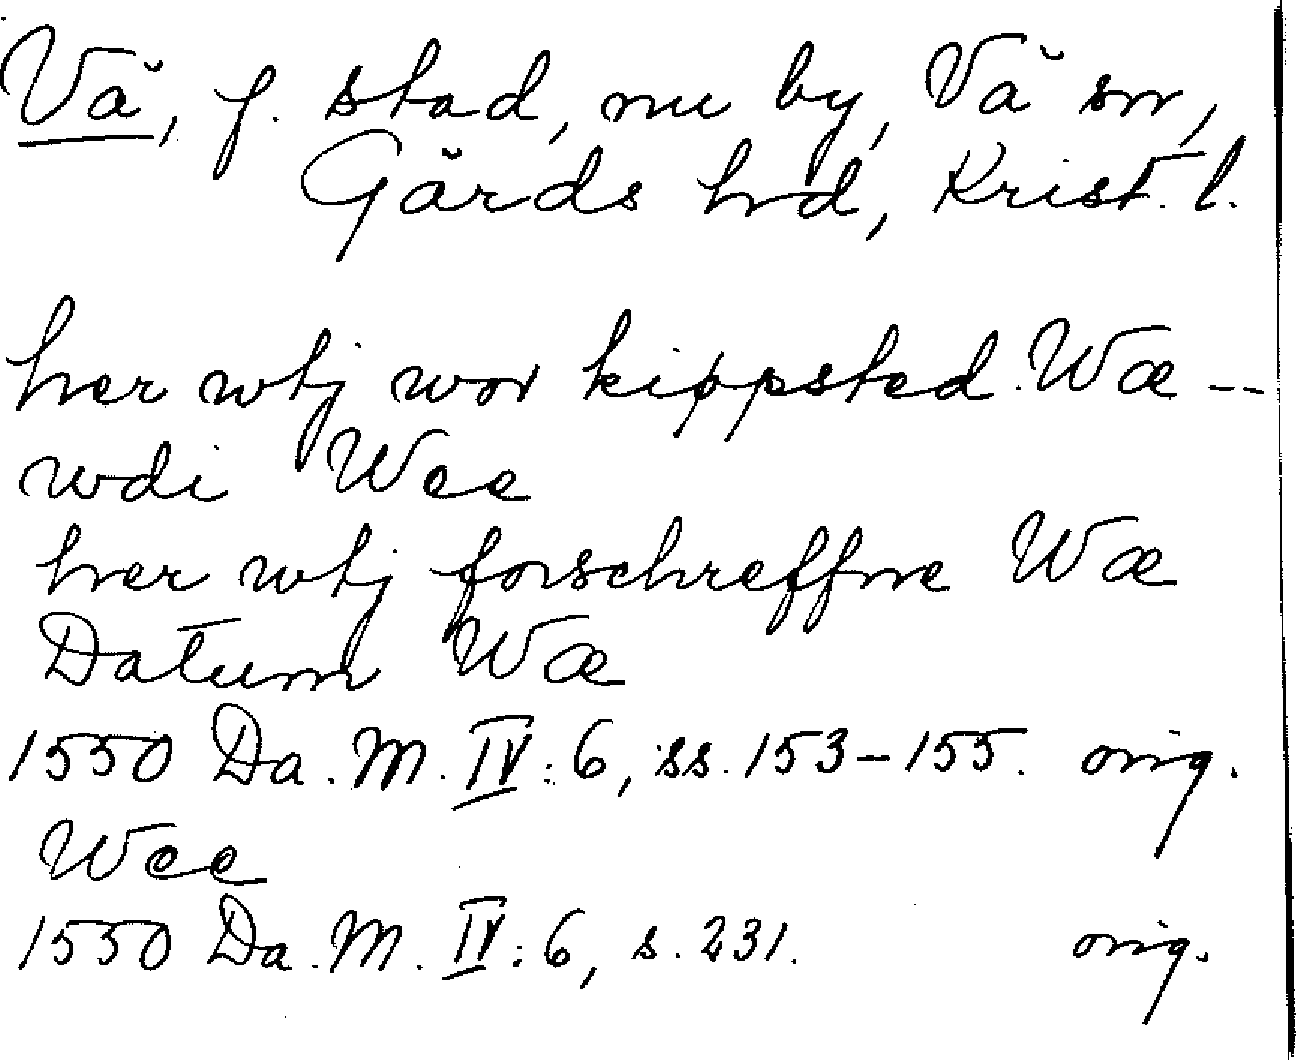 Vä, f. stad, nu by, Vä sn,
Gärds hrd, Krist. l.
her wtj wor kippsted Wæ --
wdi Wee
her wtj forschreffne Wæ
Datum Wæ
1550 Da. M. IV: 6, ss. 153-155. orig.
Wee
1550 Da. M. IV: 6, s. 231. orig.